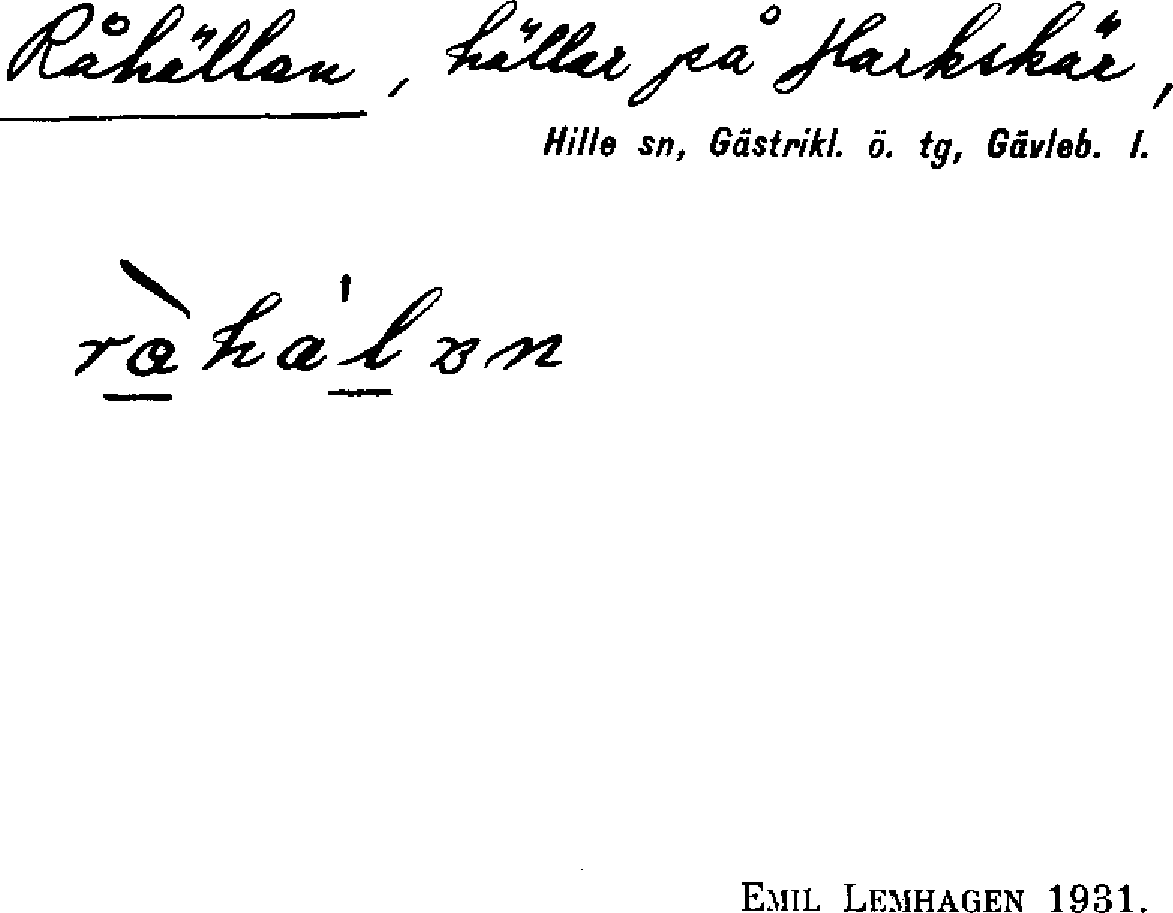 Råhällan, hällar på Harkskär,
Hille sn, Gästrikl. ö. tg, Gävleb. l.
EMIL LEMHAGEN 1931.